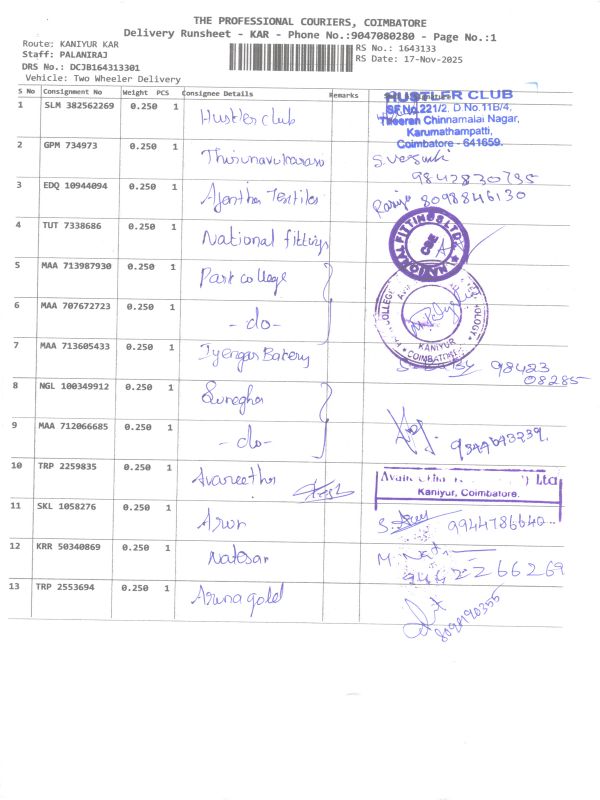 THE PROFESSIONAL COURIERS, COIMBATORE
Delivery Runsheet - KAR - Phone No.:9047080280 - Page No.:1
Route: KANIYUR KAR
Staff: PALANIRAJ
RS No.: 1643133
RS Date: 17-Nov-2025
DRS No.: DCJB164313301
Vehicle: Two Wheeler Delivery
S No Consignment No Weight PCS Consignee Details Remarks
HUSTLER CLUB
SF No.221/2, D.No.11B/4,
Theeran Chinnamalai Nagar,
Karumathampatti,
Coimbatore - 641659.
1 SLM 382562269 0.250 1 Hustler club
2 GPM 734973 0.250 1 Thirunavukarasu
9842830735
3 EDQ 10944094 0.250 1 Ajantha Textiles 8098846130
4 TUT 7338686 0.250 1 National fittings
NATIONAL FITTINGS LTD
CBE
5 MAA 713987930 0.250 1 Park college
6 MAA 707672723 0.250 1 - do -
COLLEGE
KANIYUR
COIMBATORE
7 MAA 713605433 0.250 1 Iyengar Bakery 98423
08285
8 NGL 100349912 0.250 1
9 MAA 712066685 0.250 1 - do -
10 TRP 2259835 0.250 1 Avaneetha
Ltd
Kaniyur, Coimbatore.
11 SKL 1058276 0.250 1 9944786640
12 KRR 50340869 0.250 1 Natesan
9442266269
13 TRP 2553694 0.250 1 Aruna gold
8098190355